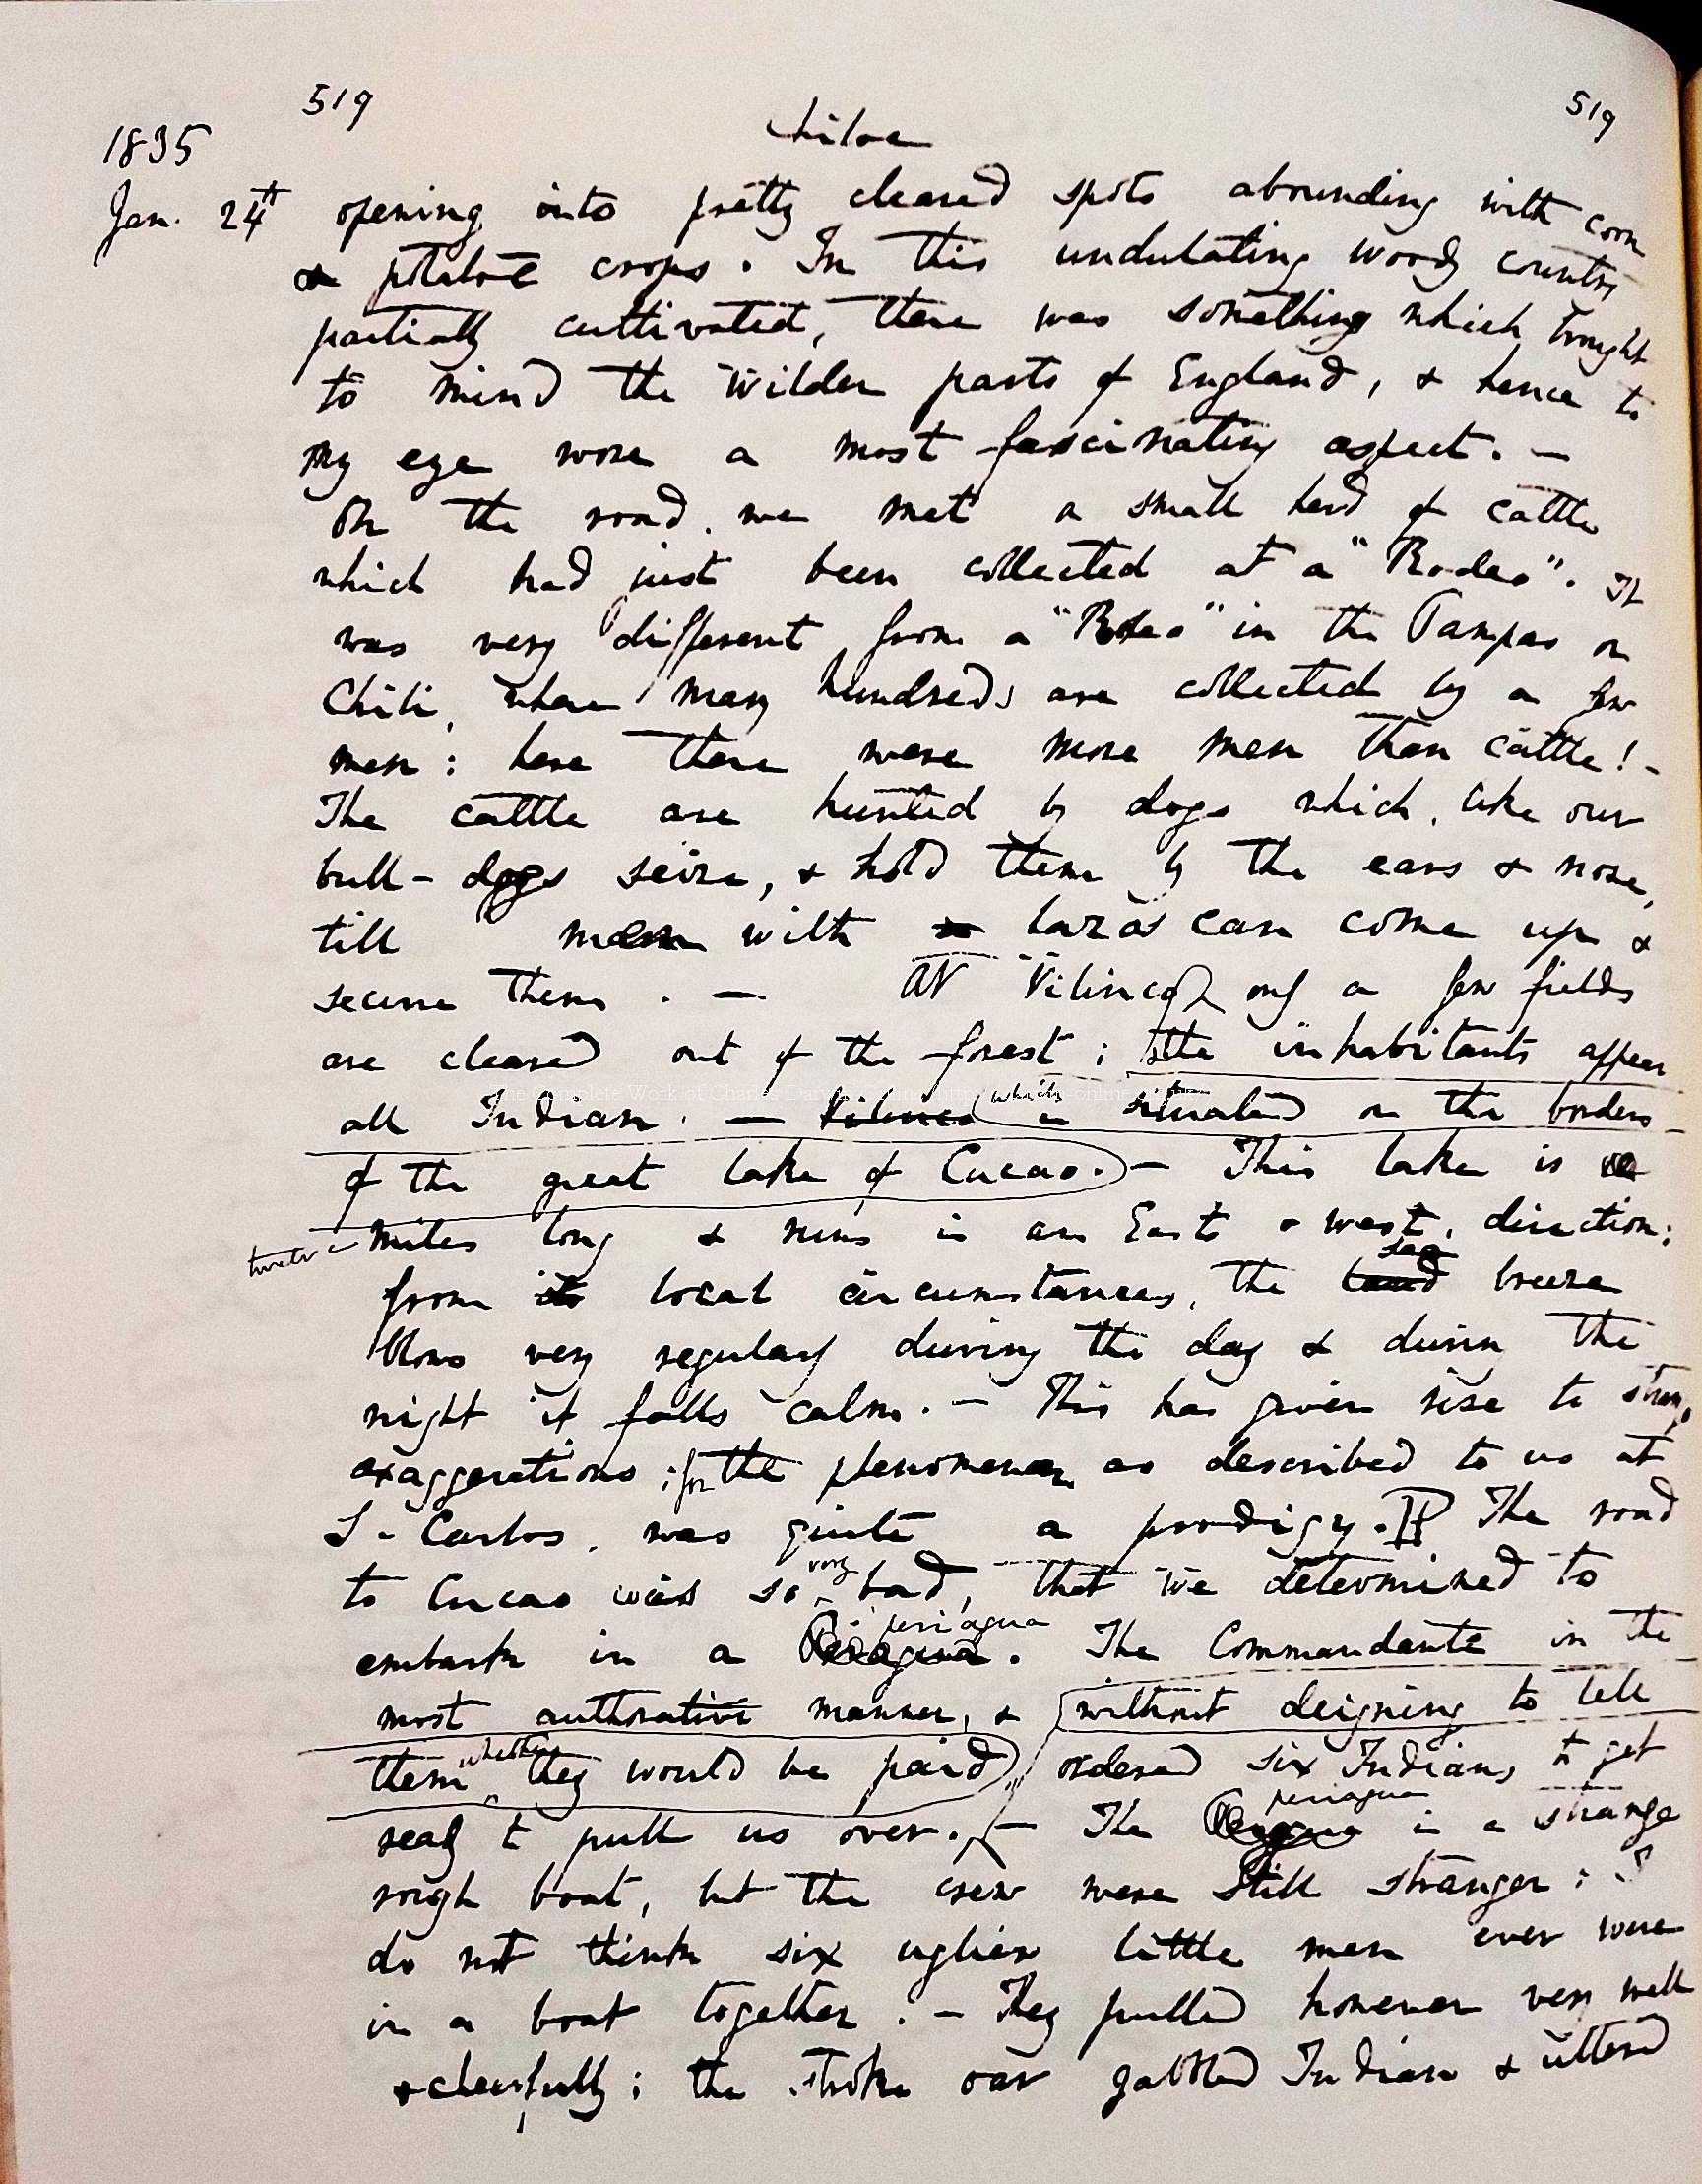 519
519
Chiloe
1835
Jan. 24th opening into pretty cleared spots abounding with corn
& potatoe crops. In this undulating woody country
partially cultivated, there was something which brought
to mind the wilder parts of England, & hence to
my eye wore a most fascinating aspect. —
On the road, we met a small herd of cattle
which had just been collected at a "Rodeo". It
was very different from a "Rodeo" in the Pampas or
Chili, where many hundreds are collected by a few
men: here there were more men than cattle! -
The cattle are hunted by dogs which, like our
bull-dogs seize, & hold them by the ears & nose,
till men with lazos can come up &
secure them. — At Vilinco only a few fields
are cleared out of the forest; the inhabitants appear
all Indian. — Vilinco which is situated on the borders
of the great lake of Cucao. — This lake is
twelve miles long & runs in an East & West, direction:
from its local circumstances, the land sea breeze
blows very regularly during the day & during the
night it falls calm. — This has given rise to strange
exaggerations; for the phenomenon as described to us at
S. Carlos, was quite a prodigy. The road
to Cucao was so very bad, that we determined to
embark in a Periagua periagua. The Commandante in the
most authorative manner, & without deigning to tell
them whether they would be paid, ordered six Indians to get
ready to pull us over. — The Periagua periagua is a strange
rough boat, but the crew were still stranger: I
do not think six uglier little men ever were
in a boat together. — They pulled however very well
& cheerfully; the stroke oar gabbled Indian & uttered